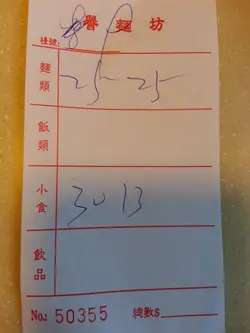 譽麵坊
檯號:
麵類 25-25
飯類
小食 30 13
飲品
No.: 50355 總數$